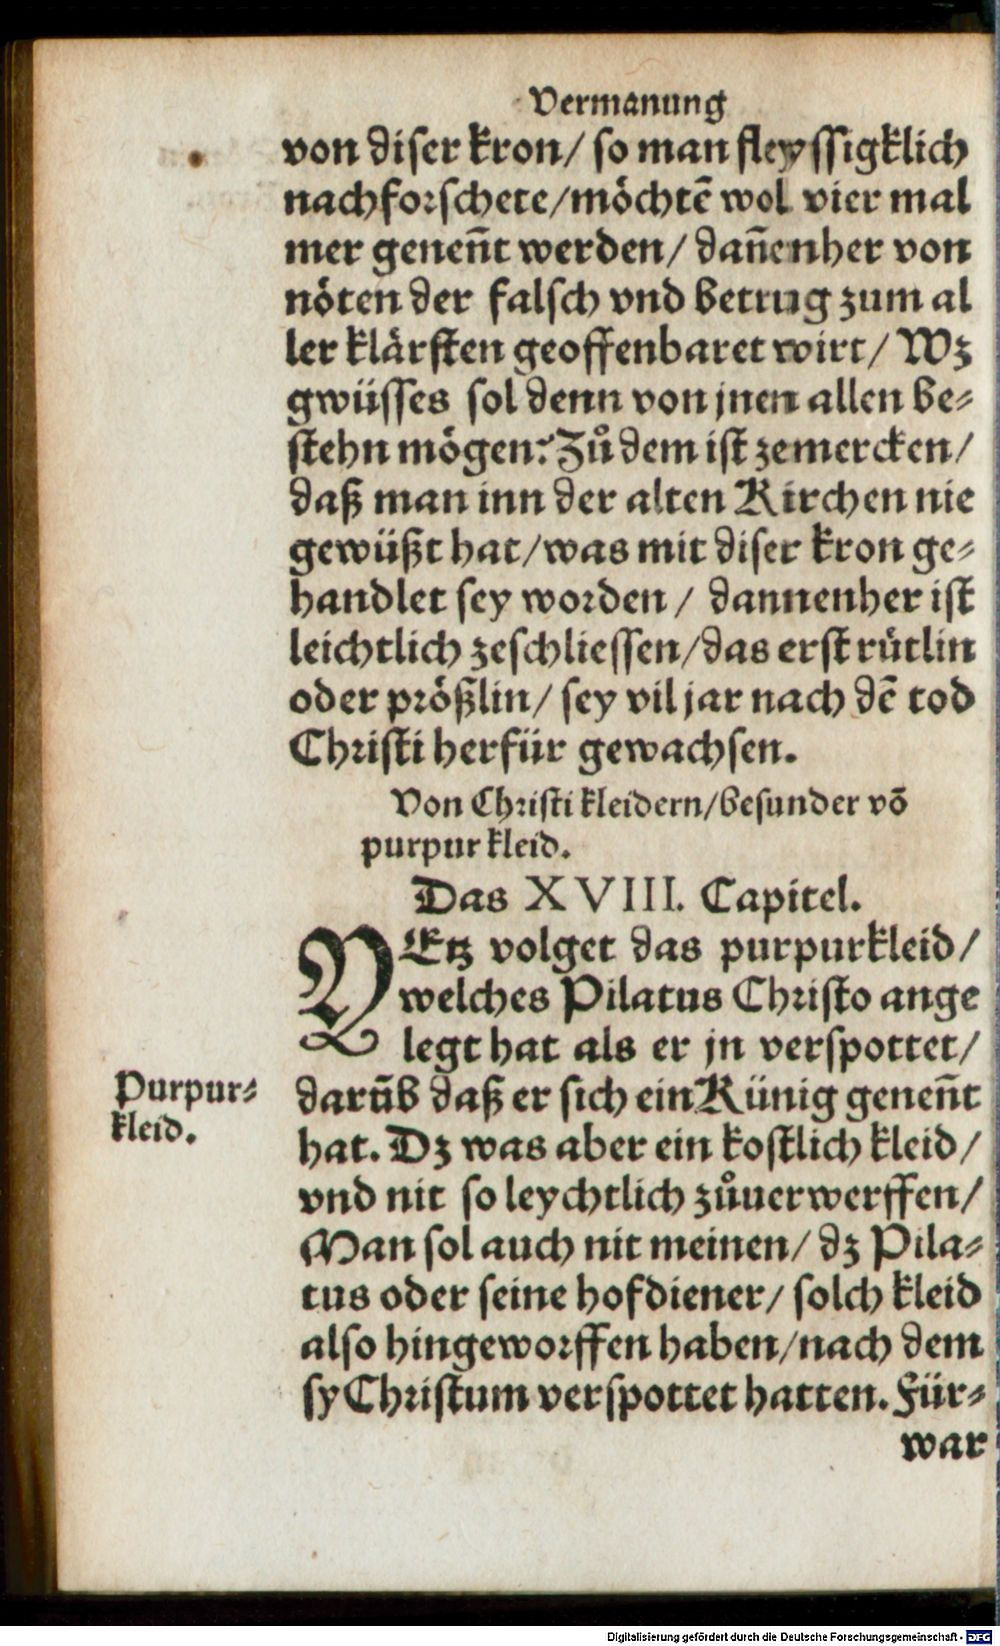 Vermanung
von diser kron/ so man fleyssigklich
nachforschete/möchtē wol vier mal
mer geneñt werden/ dañenher von
nöten der falsch vnd betrug zum al
ler klärsten geoffenbaret wirt/ Wz
gwüsses sol denn von jnen allen be⸗
stehn mögen? Zů dem ist zemercken/
daß man inn der alten Kirchen nie
gewüßt hat/was mit diser kron ge⸗
handlet sey worden/ dannenher ist
leichtlich zeschliessen/das erst rütlin
oder prößlin/ sey vil jar nach dē tod
Christi herfür gewachsen.
Von Christi kleidern/besunder vō
purpur kleid.
Das XVIII. Capitel.
YEtz volget das purpurkleid/
welches Pilatus Christo ange
legt hat als er jn verspottet/
Purpur⸗
kleid.
darūb daß er sich ein Künig geneñt
hat. Dz was aber ein kostlich kleid/
vnd nit so leychtlich zůuerwerffen/
Man sol auch nit meinen/ dz Pila⸗
tus oder seine hofdiener/ solch kleid
also hingeworffen haben/nach dem
sy Christum verspottet hatten. Für⸗
war
Digitalisierung gefördert durch die Deutsche Forschungsgemeinschaft - DFG